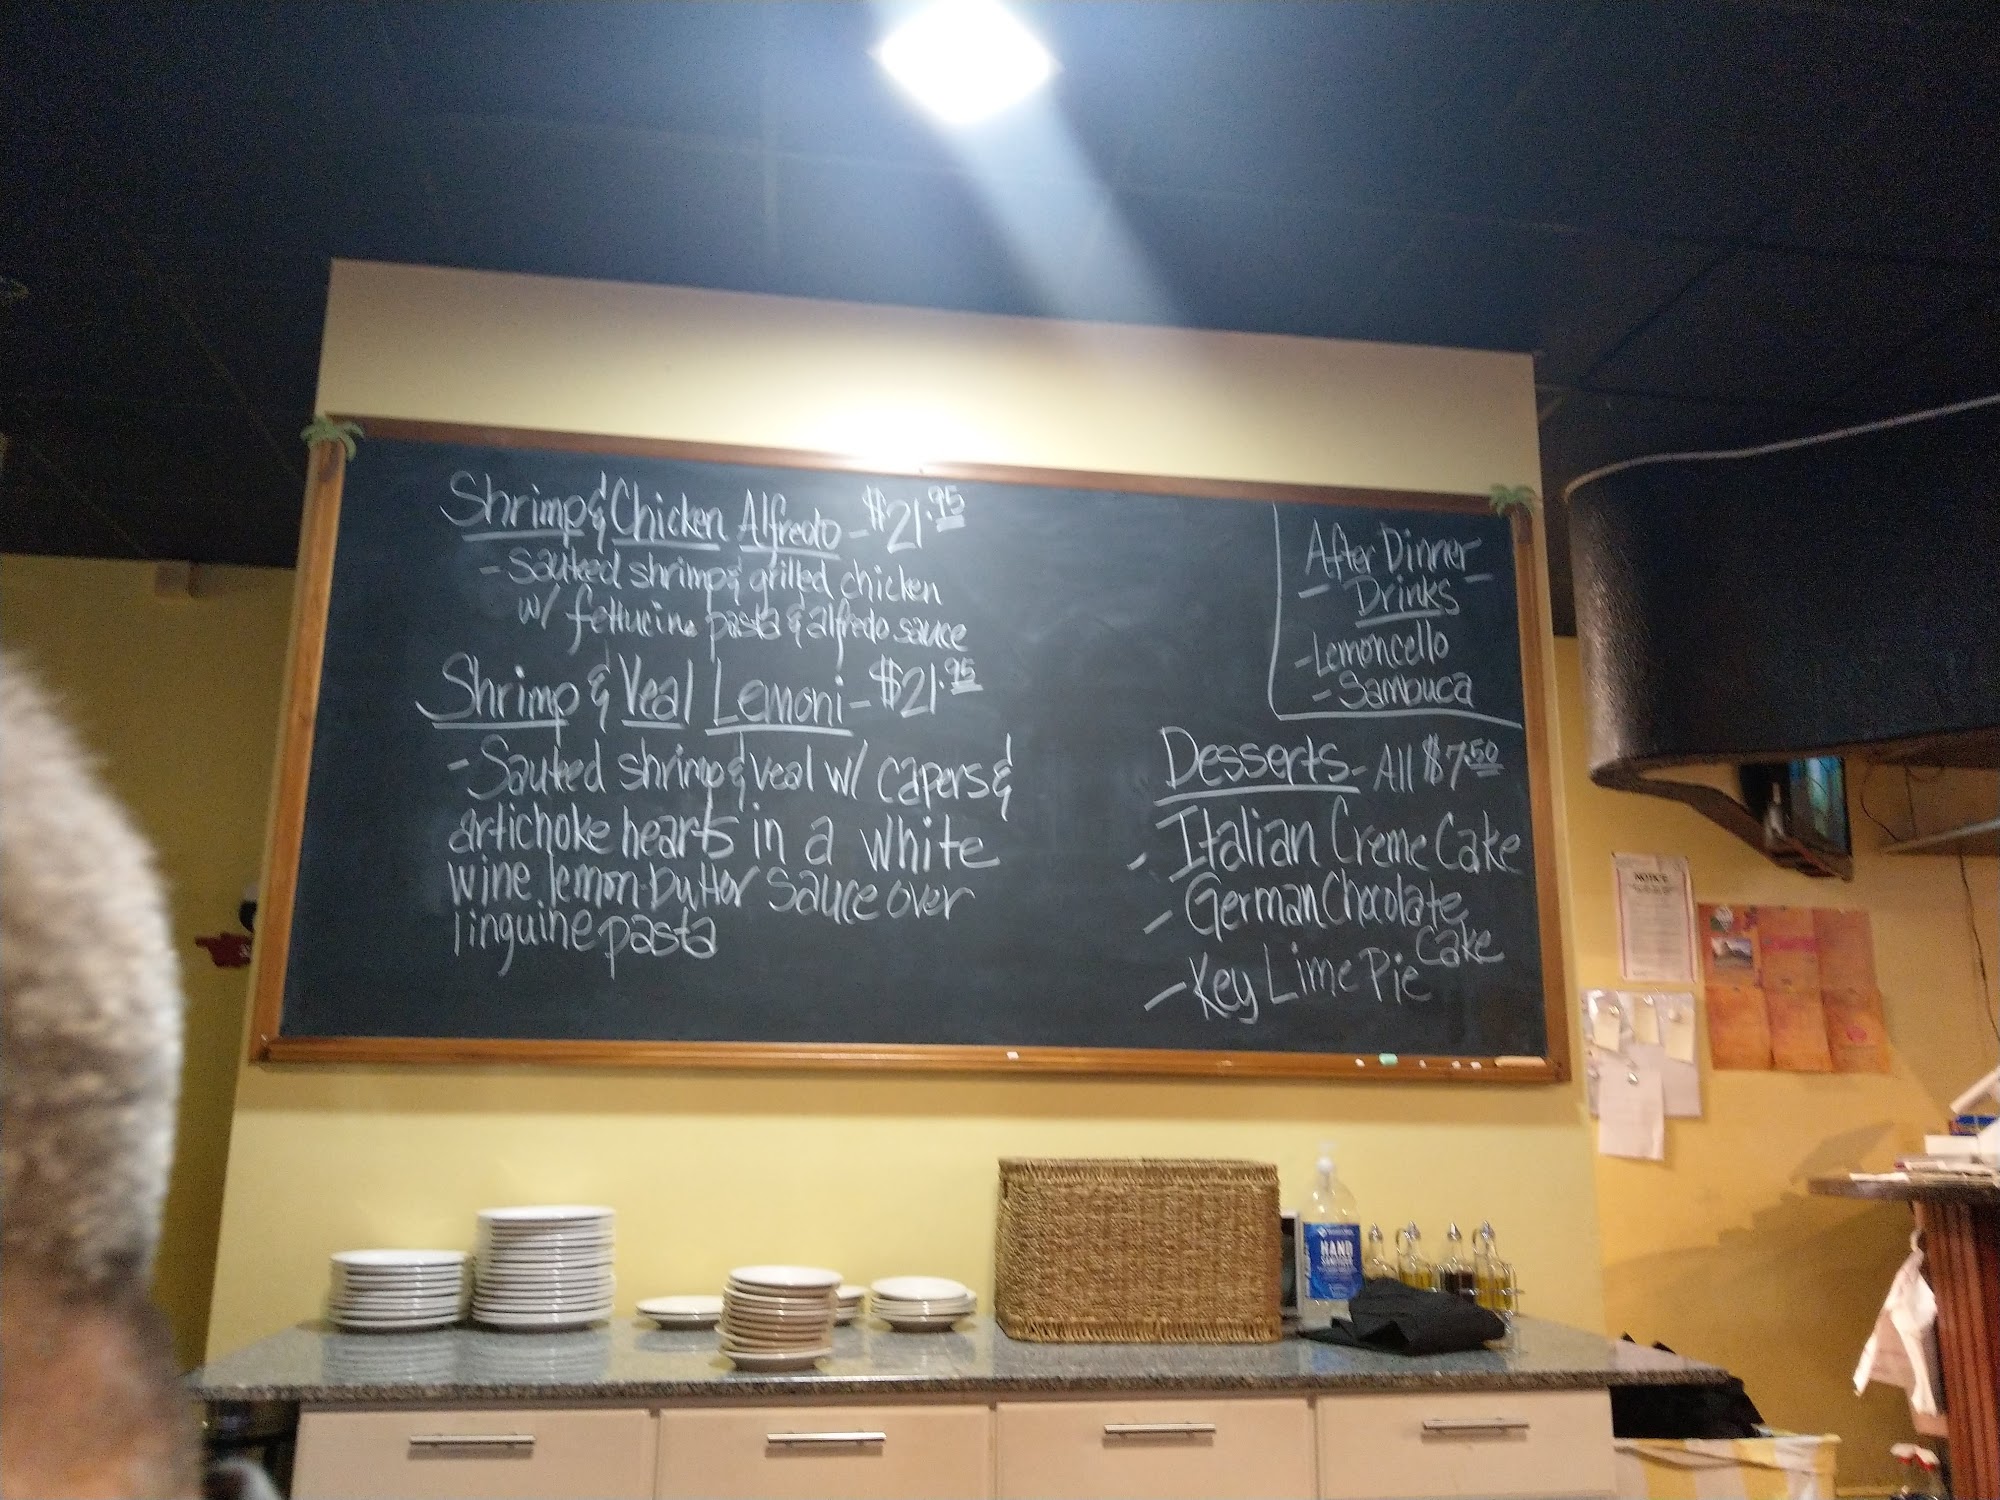 Shrimp & Chicken Alfredo - $21.95
- sauteed shrimp & grilled chicken
w/ fettucine pasta & alfredo sauce
Shrimp & Veal Lemoni - $21.95
- Sauteed shrimp & veal w/ capers &
artichoke hearts in a white
wine lemon-butter sauce over
linguine pasta
After Dinner
- Drinks -
- Lemoncello
- Sambuca
Desserts - All $7.50
- Italian Creme Cake
- German Chocolate
Cake
- Key Lime Pie
NOTICE
HAND
SANITIZER